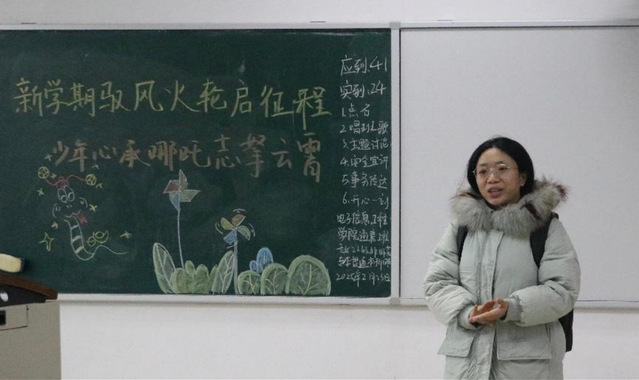 新学期驭风火轮启征程
少年心承哪吒志擎云霄
应到:41
实到:24
1.点名
2.唱团歌
3.主题讨论
5.事务传达
6.开心一刻
电子信息工程
学院通第二班